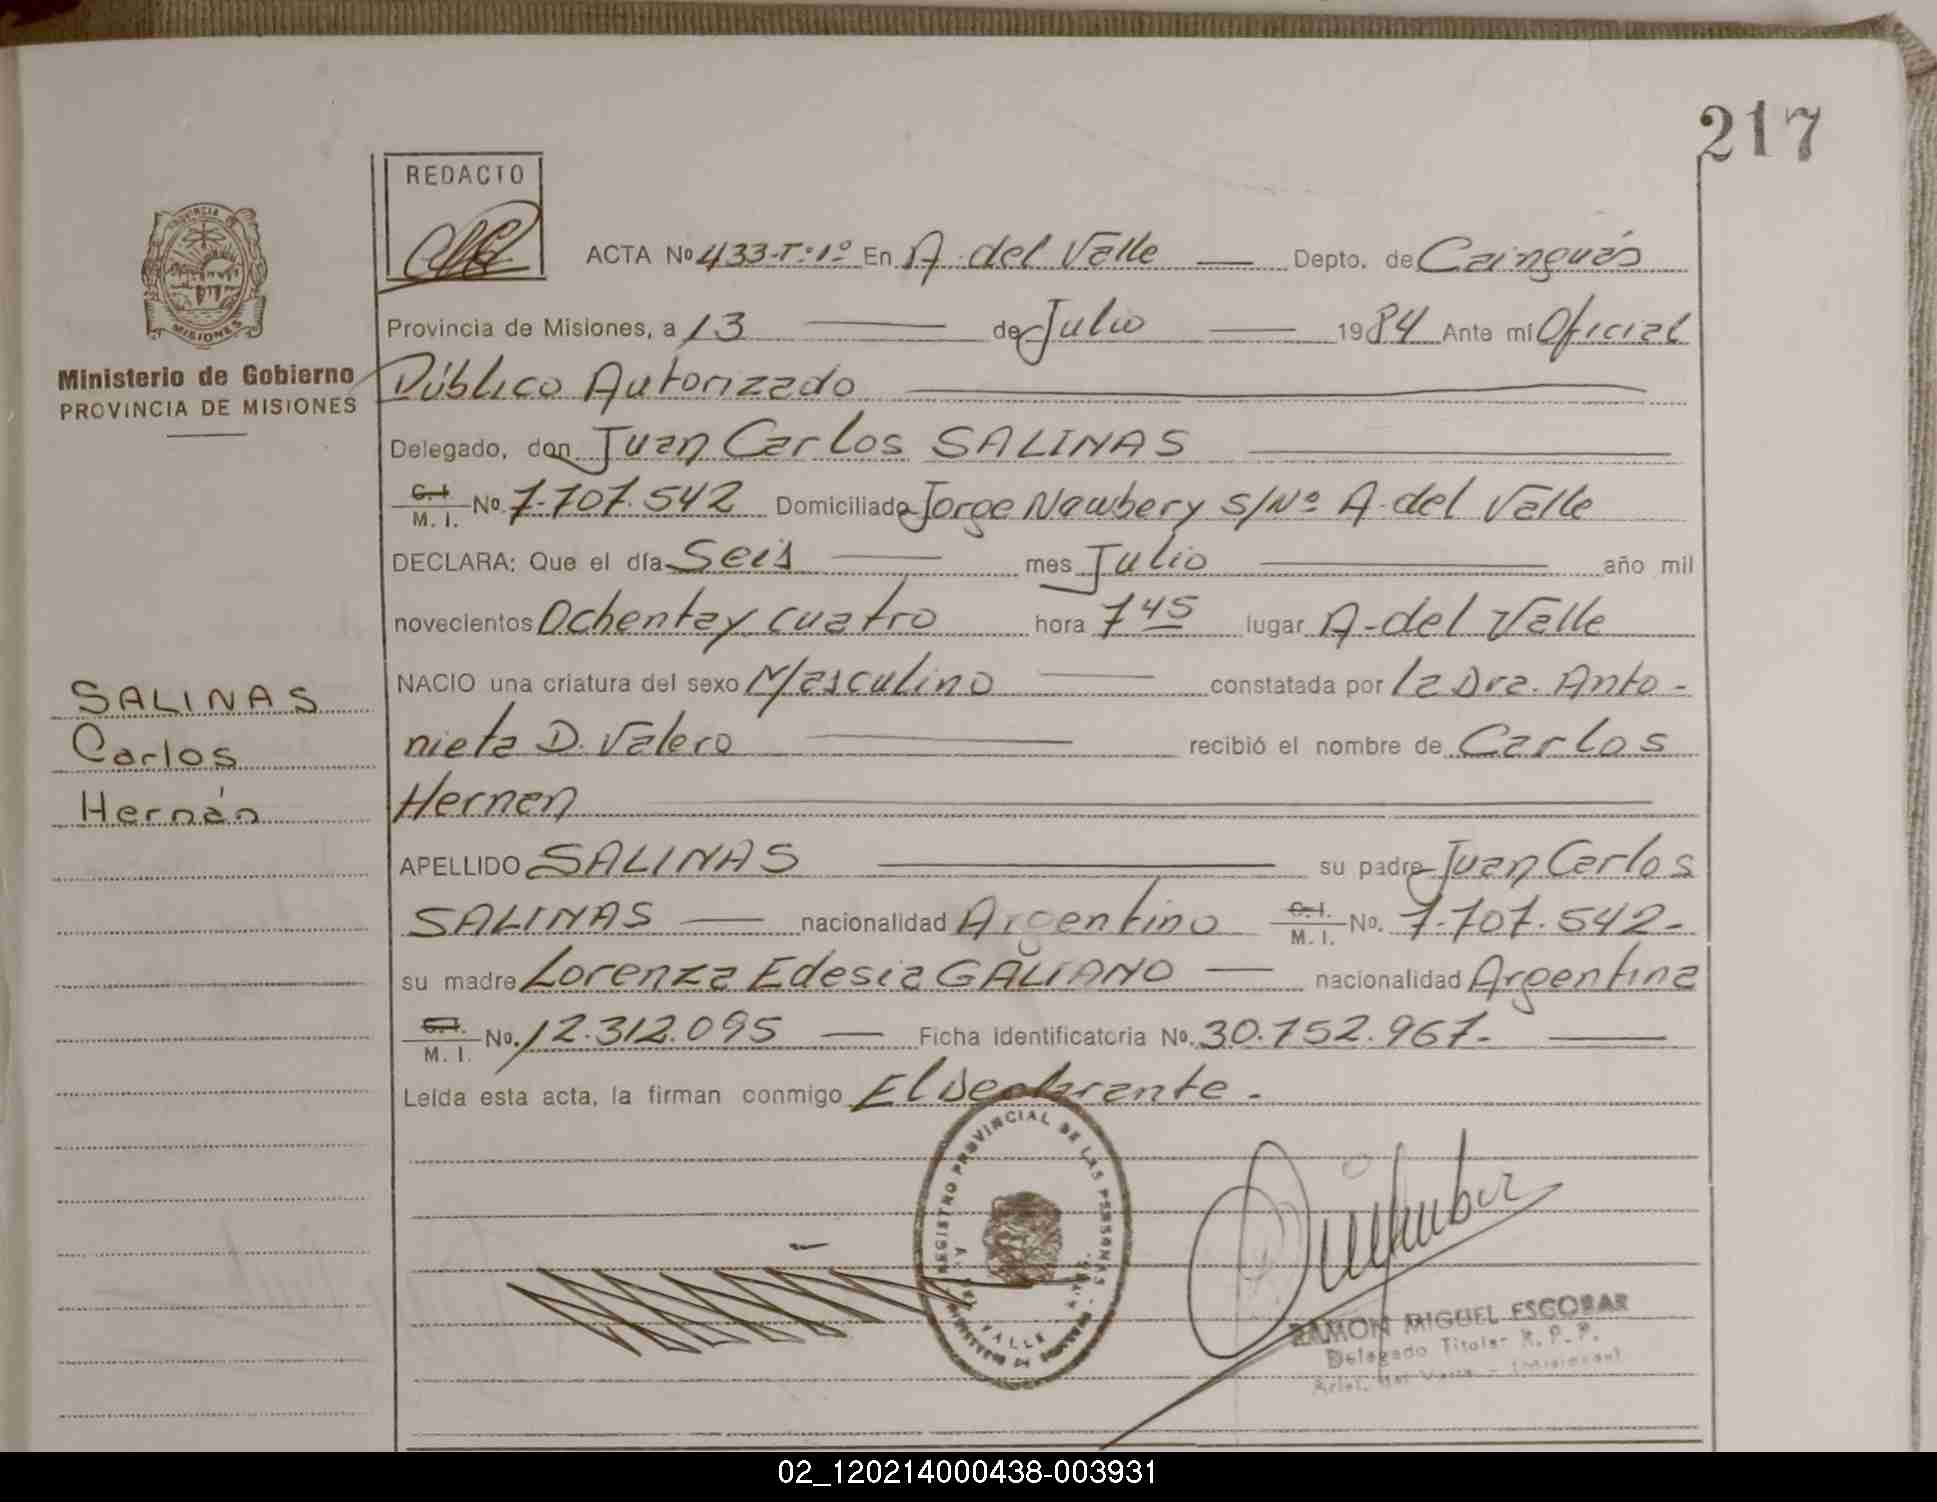 217
REDACTO
ACTA No 433-Tº:1º En A. del Valle Depto. de Cainguás
Provincia de Misiones, a 13 de Julio 1984 Ante mí Oficial
Ministerio de Gobierno
PROVINCIA DE MISIONES
Público Autorizado
Delegado, don Juan Carlos SALINAS
C.I. M. I. No. 7.707.542 Domiciliado Jorge Newbery S/Nº A. del Valle
DECLARA: Que el día Seis mes Julio año mil
novecientos Ochenta y cuatro hora 7 45 lugar A-del Valle
NACIO una criatura del sexo Masculino constatada por la Dra. Anto-
SALINAS
Carlos
Hernán
nieta D. Valero recibió el nombre de Carlos
Hernan
APELLIDO SALINAS su padre Juan Carlos
SALINAS nacionalidad Argentino C.I. M. I. No. 7.707.542-
su madre Lorenza Edesia GALIANO nacionalidad Argentina
C.I. M. I. No. 12.312.095 Ficha identificatoria No. 30.752.967-
Leída esta acta, la firman conmigo El Declarante.
REGISTRO PROVINCIAL DE LAS PERSONAS
VALLE
RAMON MIGUEL ESCOBAR
Delegado Titular R. P. P.
02_120214000438-003931